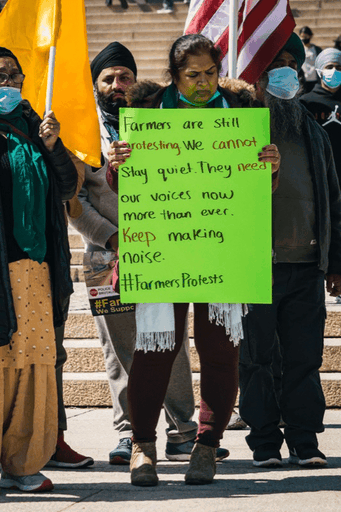 Farmers are still
protesting. We cannot
stay quiet. They need
our voices now
more than ever.
Keep making
noise.
#FarmersProtests
#Farme
We Suppo